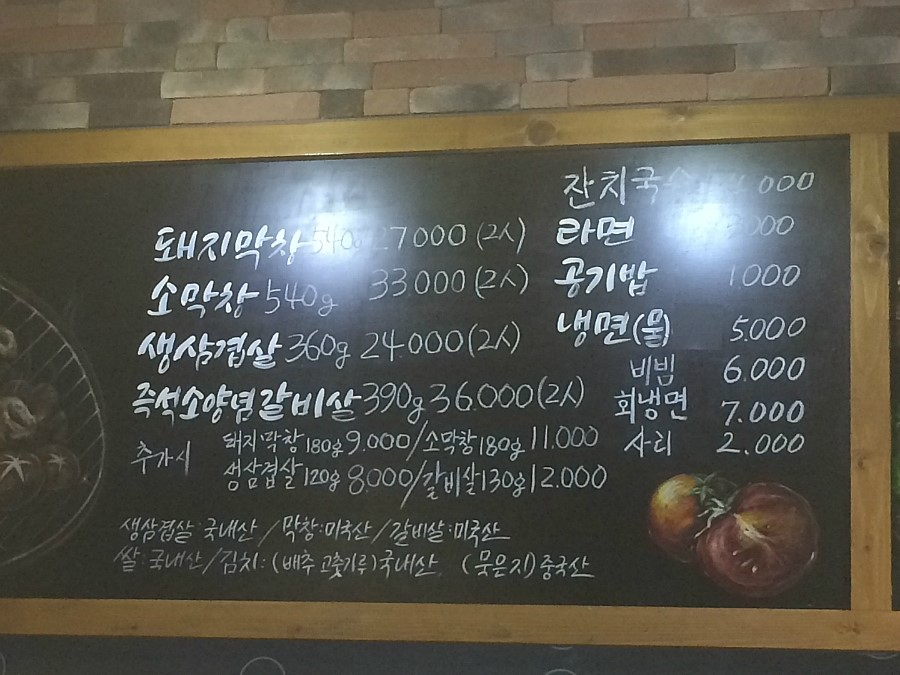 돼지막창 540g 27000 (2人)
소막창 540g 33.000 (2人)
생삼겹살 360g 24.000 (2人)
즉석소양념갈비살 390g 36.000 (2人)
추가시 돼지막창 180g 9.000 / 소막창 180g 11.000
생삼겹살 120g 8.000 / 갈비살 130g 12.000
생삼겹살:국내산 / 막창:미국산 / 갈비살:미국산
쌀:국내산 / 김치:(배추 고춧가루)국내산 (묵은지)중국산
잔치국수 000
라면 000
공기밥 1000
냉면(물) 5.000
비빔 6.000
회냉면 7.000
사리 2.000